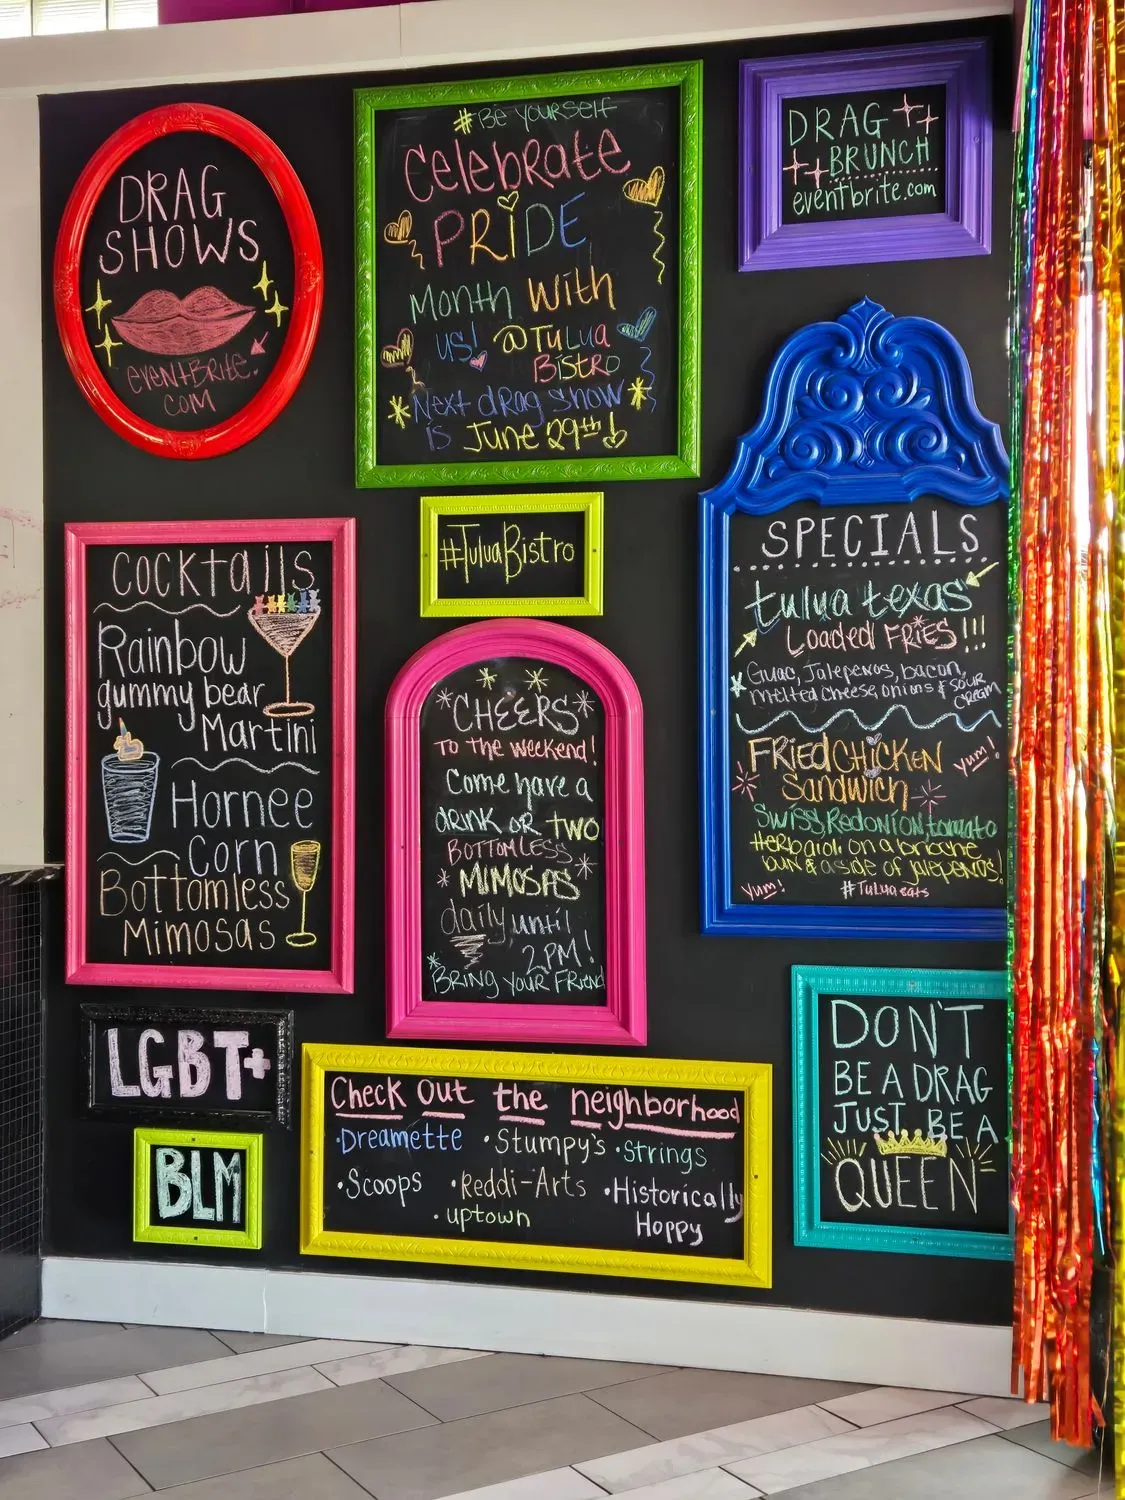 DRAG
SHOWS
EVENTBRITE.
COM
#BE YOURSELF
Celebrate
PRIDE
Month With
us! @TuLua
BISTRO
Next drag show
is June 29th!
DRAG
BRUNCH
eventbrite.com
#TuluaBistro
COCKtails
Rainbow
gummy bear
Martini
Hornee
Corn
Bottomless
Mimosas
CHEERS
TO THE WEEKEND!
Come have a
drink or TWO
BOTTOMLESS
MIMOSAS
daily until
2PM!
BRING YOUR FRIEND
SPECIALS
tulua texas
Loaded FRIES!!!
Guac, Jalepenos, bacon,
melted cheese, onions & sour
cream
FRIED CHICKEN
Sandwich
Yum!
Swiss, Red onion, tomato
Herb aioli on a brioche
bun & a side of jalepenos!
Yum!
#TuLuaeats
LGBT+
BLM
Check out the neighborhood
·Dreamette ·Stumpy's ·Strings
·Scoops ·Reddi-Arts ·Historically
Hoppy
·uptown
DON'T
BE A DRAG
JUST BE A
QUEEN